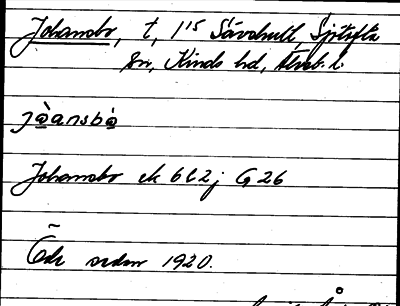 Johansbo, t, 1/15 Sävshult, Sjötofta
sn, Kinds hd, Älvsb. l.
jòansbo
Johansbo ek 6C2j G26
Öde sedan 1920.